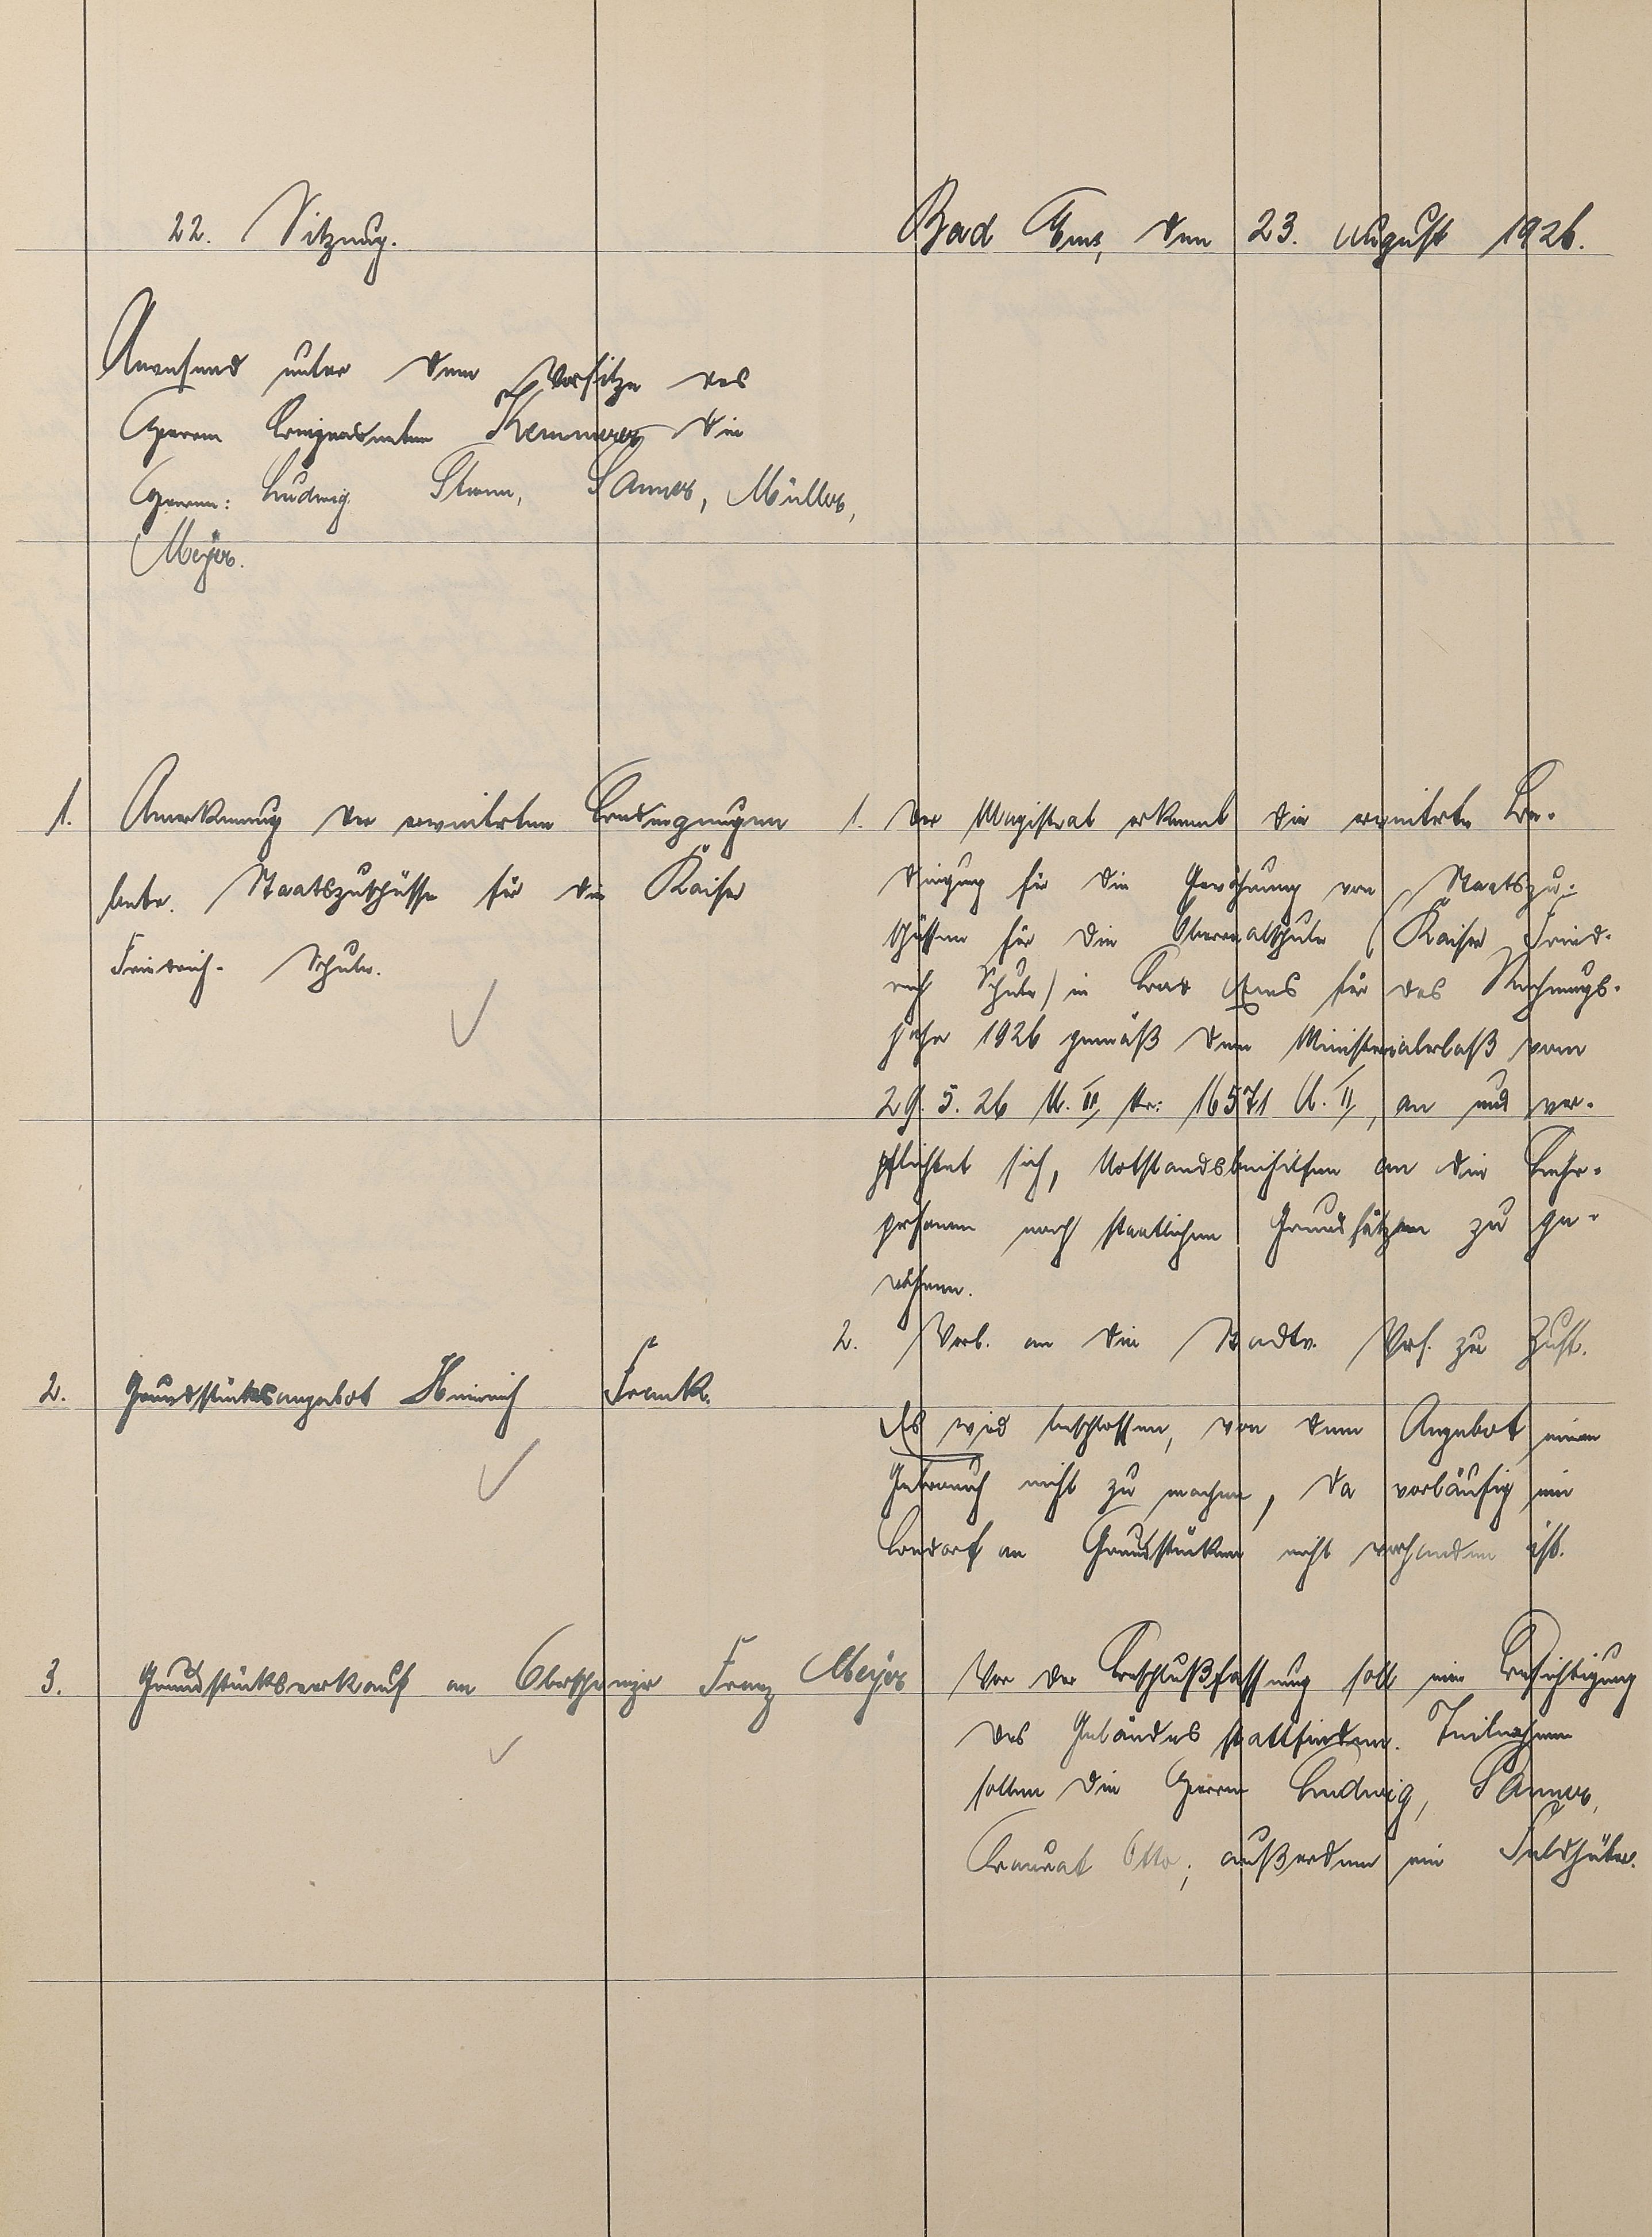 22. Sitzung.
Bad Ems, den 23. August 1926.
Anwesend unter dem Vorsitze des
Herrn Beigeordneten Kemmerer die
Herren: Ludwig Stemm, Sanner, Müller,
Meyer.
1. Anerkennung der erweiterten Bedingungen
betr. Staatszuschüsse für die Kaiser
Friedrich- Schule.
1. Der Magistrat erkennt die erweiterte Be-
dingung für die Gewährung von Staatszu-
schüssen für die Oberrealschule (Kaiser Fried-
rich Schule) in Bad Ems für das Rechnungs-
jahr 1926 gemäß dem Ministerialerlaß vom
29. 5. 26 U. II, Nr: 16571 U. II, an und ver-
pflichtet sich, Notstandsbeihilfen an die Lehr-
personen nach staatlichen Grundsätzen zu ge-
währen.
2. Vorl. an die Stadtv. Vers. zu Zust.
2. Grundstücksangebot Heinrich Frank.
Es wird beschlossen, von dem Angebot einen
Gebrauch nicht zu machen, da vorläufig ein
Bedarf an Grundstücken nicht vorhanden ist.
3. Grundstücksverkauf an Franz Meyer
Vor der Beschlußfassung soll eine Besichtigung
des Geländes stattfinden. Teilnehmen
sollen die Herren Ludwig, Sanner,
Baurat Otto, außerdem ein Feldhüter.